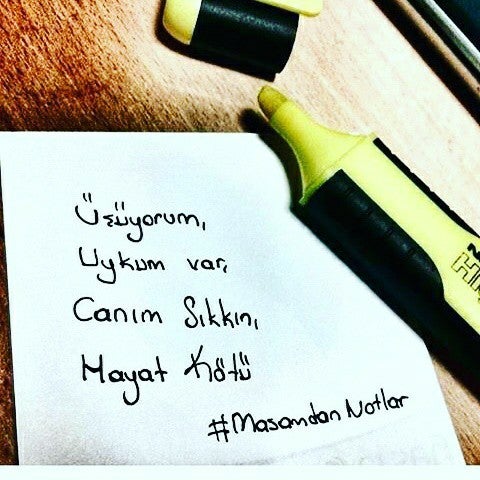 Üşüyorum,
Uykum var,
Canım Sıkkın,
Hayat Kötü
#MasamdanNotlar